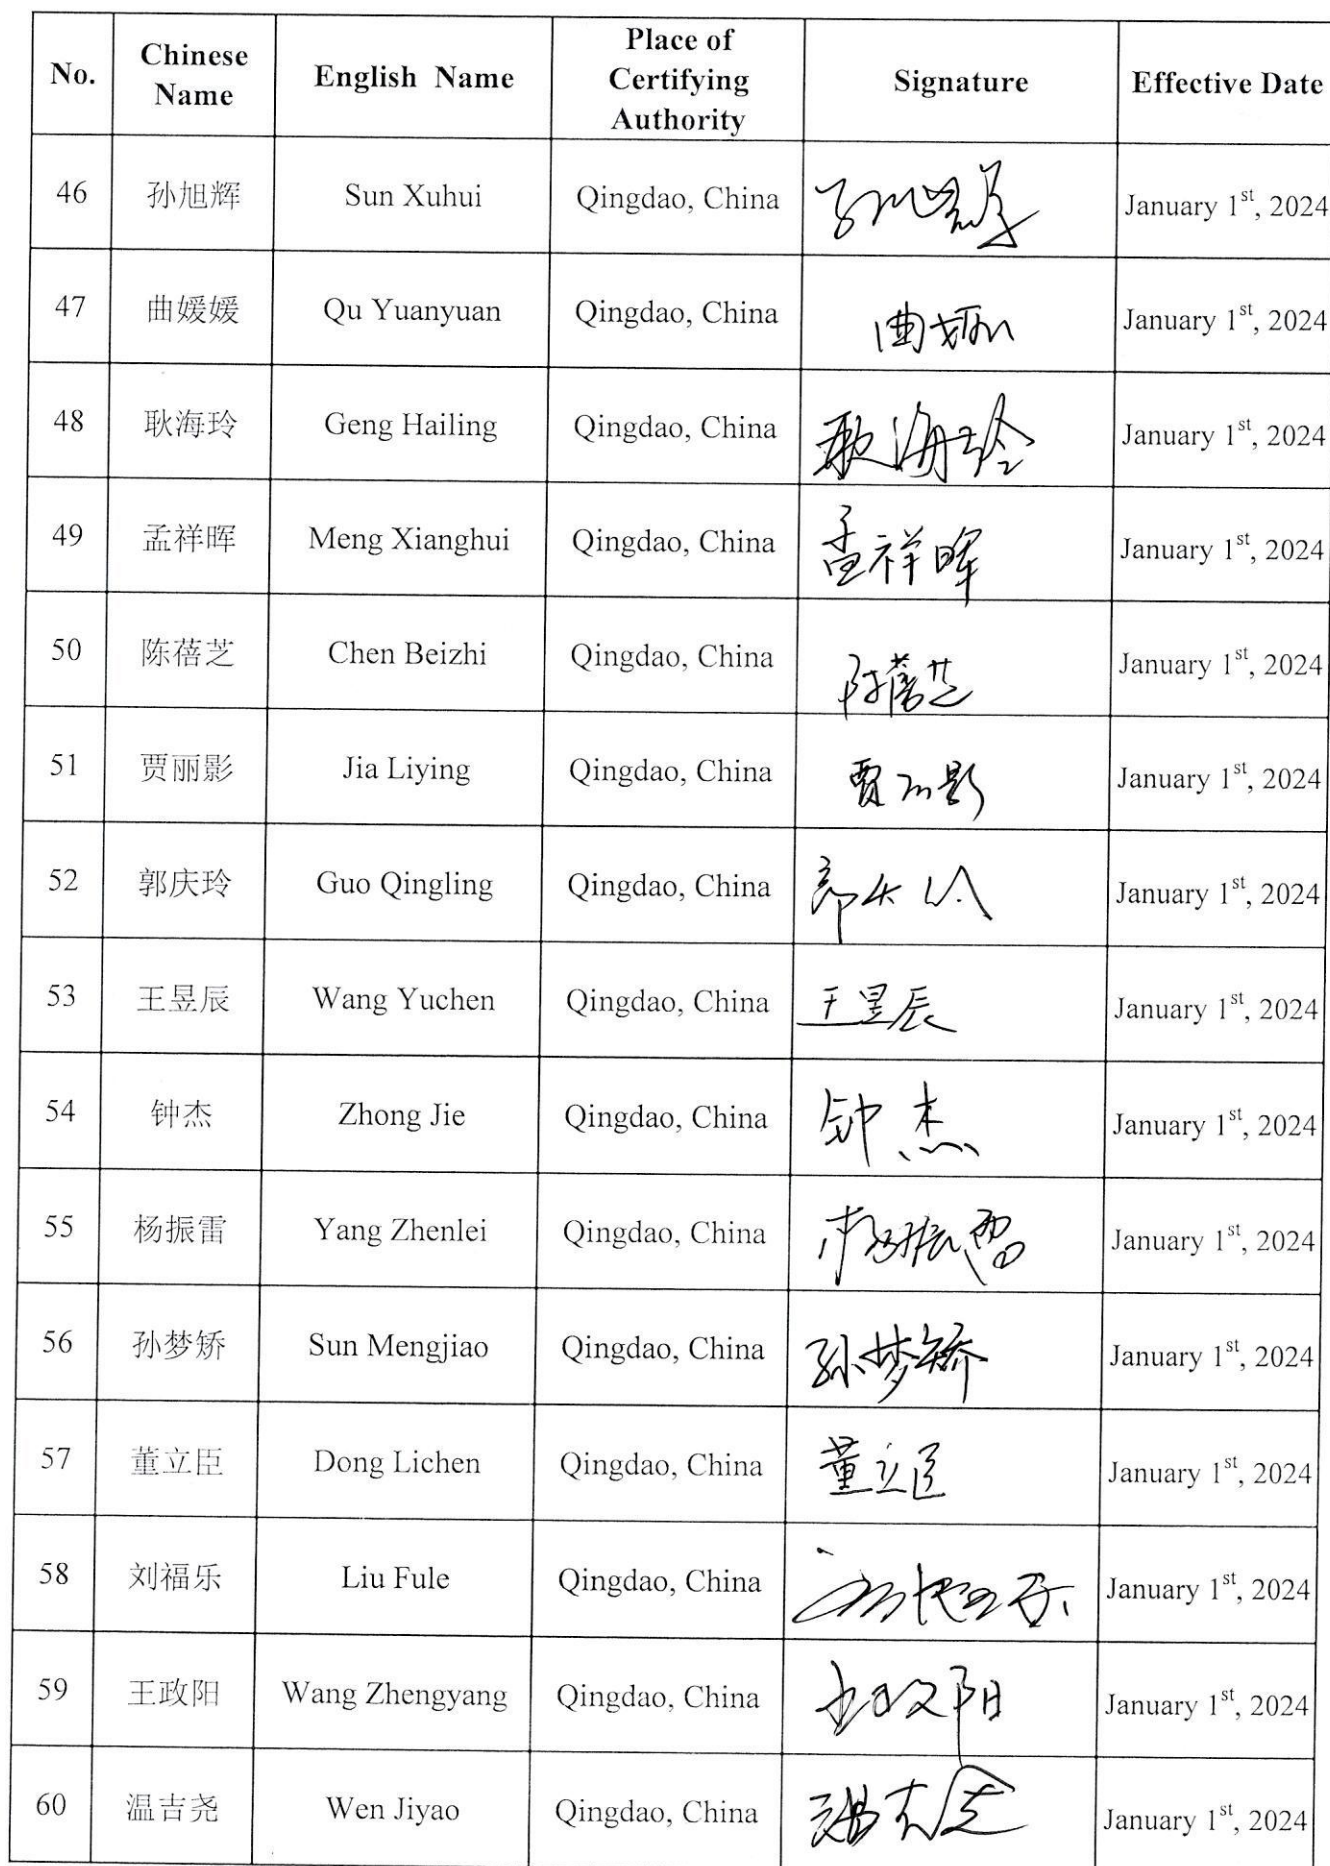 No.
Chinese Name
English Name
Place of Certifying Authority
Signature
Effective Date
46 孙旭辉 Sun Xuhui Qingdao, China January 1st, 2024
47 曲媛媛 Qu Yuanyuan Qingdao, China January 1st, 2024
48 耿海玲 Geng Hailing Qingdao, China 耿海玲 January 1st, 2024
49 孟祥晖 Meng Xianghui Qingdao, China 孟祥晖 January 1st, 2024
50 陈蓓芝 Chen Beizhi Qingdao, China 陈蓓芝 January 1st, 2024
51 贾丽影 Jia Liying Qingdao, China 贾丽影 January 1st, 2024
52 郭庆玲 Guo Qingling Qingdao, China January 1st, 2024
53 王昱辰 Wang Yuchen Qingdao, China 王昱辰 January 1st, 2024
54 钟杰 Zhong Jie Qingdao, China 钟杰 January 1st, 2024
55 杨振雷 Yang Zhenlei Qingdao, China 杨振雷 January 1st, 2024
56 孙梦矫 Sun Mengjiao Qingdao, China 孙梦矫 January 1st, 2024
57 董立臣 Dong Lichen Qingdao, China 董立臣 January 1st, 2024
58 刘福乐 Liu Fule Qingdao, China January 1st, 2024
59 王政阳 Wang Zhengyang Qingdao, China 王政阳 January 1st, 2024
60 温吉尧 Wen Jiyao Qingdao, China 温吉尧 January 1st, 2024